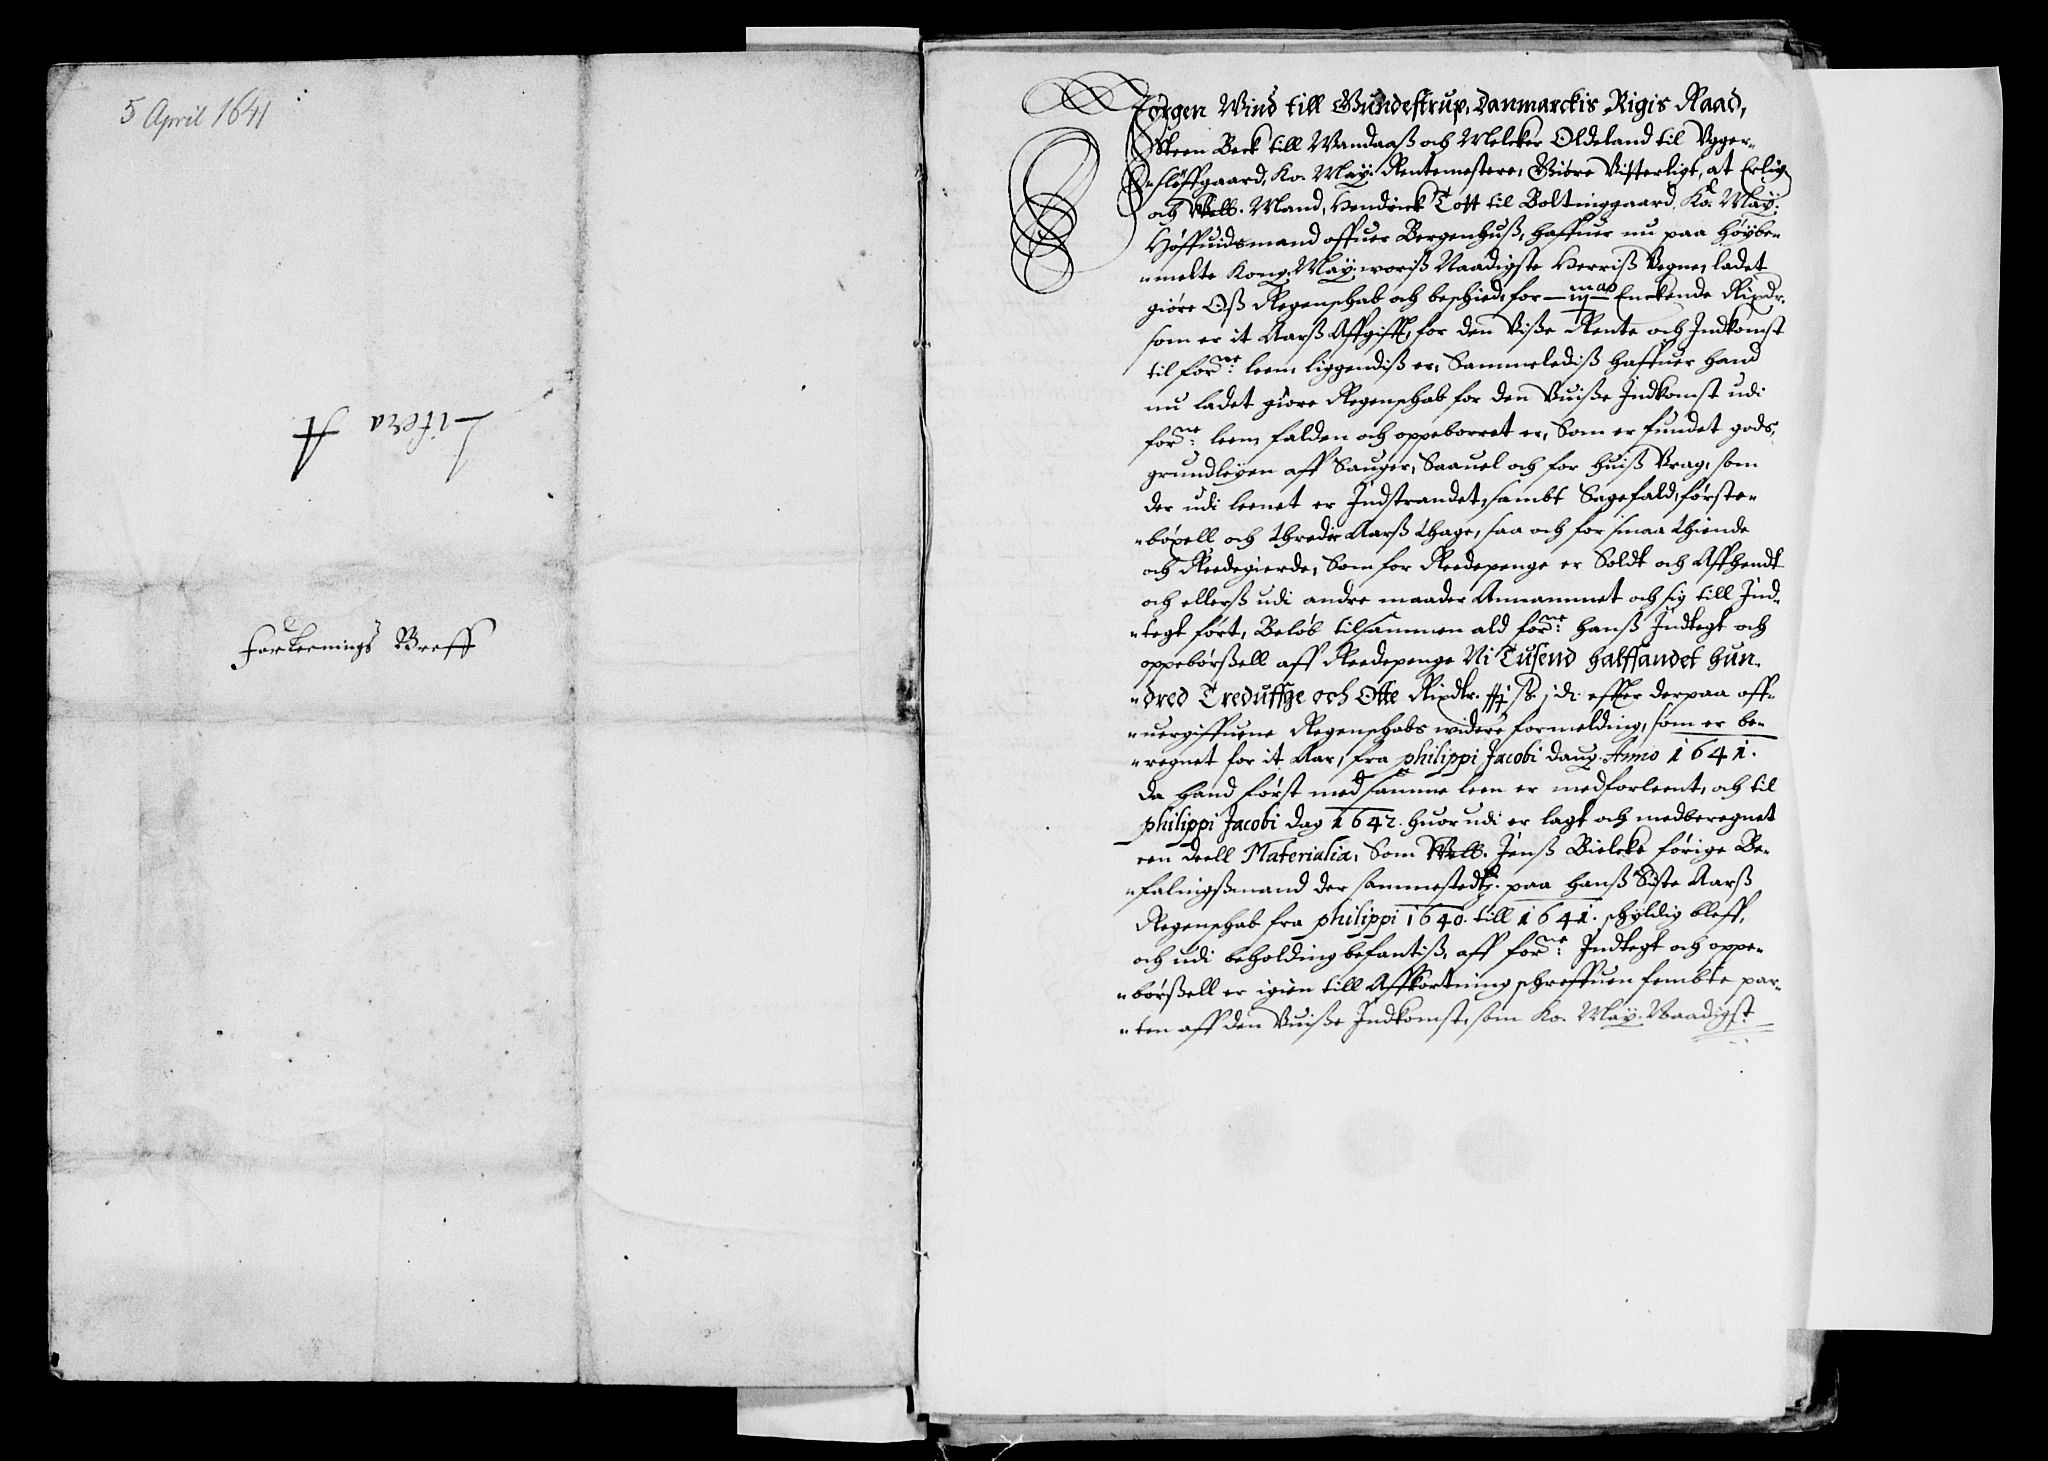 5 April 1641
Litera A
forleenings Breff
Jørgen Wind till Gundestrup, Danmarckis Rigis Raad,
Steen Beck till Wandaaß och Melcker Oldeland til Vgger-
-sløffgaard, Ko. May. Rentemestere, Giöre Vitterligt, at Erlig
och Welb. Mand, Hendrick Tott til Boltinggaard, Ko. May.
Höffuidsmand offuer Bergenhuß, haffuer nu paa höybe-
-melte Kong. May. woriß Naadigste Herriß Vegne, ladet
giöre Oß Regenschab och beschied, for Enckende Rixdr.
som er it Aarß Affgifft, for den Viße Rente och Indkomst
til forne: leen, liggendiß er, Sammelediß haffuer hand
nu ladet giöre Regenschab for den Vuiße Indkomst udi
forne: leen, falden och oppeborret er, Som er fundet gods,
grundleyen aff Sauger, Saauel och for huiß Vrag, som
der udi leenet er Indstrandet, sambt Sagefald, förste-
-böxell och thredie Aarß thage, saa och for smaa thiende
och Reedegierde, Som for Reedepenge er Soldt och Affhendt
och ellerß udi andre maader Annammet och sig till Ind-
-tegt fört, Belöb tilsammen ald forne: hanß Indtegt och
oppebörßell aff Reedepenge Ni Tusend halffandet hun-
-dred Treduffge och Otte Rixdlr. ß. effter derpaa off-
-uergiffuene Regenschabs widere formelding, som er be-
-regnet for it Aar, fra philippi Jacobi daug. Anno 1641.
Da hand först med samme leen er medforleent, och til
philippi Jacobi dag 1642. huor udi er lagt och medberegnet
een deell Materialia, Som Welb. Jenß Bielcke förige Be-
-falingßmand der sammestedtz. paa hanß Siste Aarß
Regenschab fra philippi 1640. till 1641. schyldig bleff,
och udi beholding befantiß, aff forne: Indtegt och oppe-
-börßell er igien till Affkortning schreffuen fembte par-
-ten aff den Vuiße Indkomst, som Ko. May. Naadigst